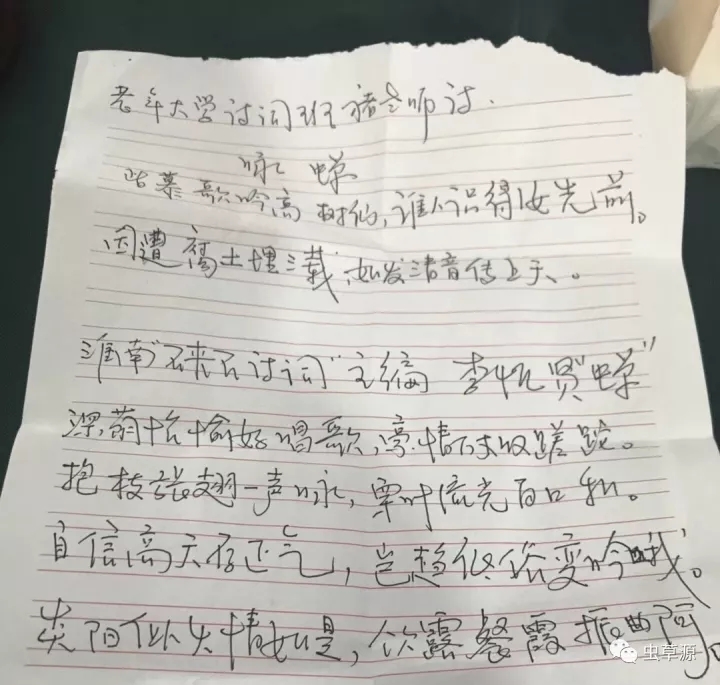 老年大学诗词班褚老师诗.
咏 蝉
歌吟高树仙,谁人识得汝先前。
因遭腐土埋三载,始发清音传上天。
淮南"不来不诗词"主编 李怀贤"蝉"
深荫恰愉好唱歌,豪情不未蹉跎。
抱枝振翅一声咏,霁时流光百口和。
自信高天存正气,岂趋低俗变吟哦。
炎阳似火情如是,饮露餐霞振曲阿。
虫草源